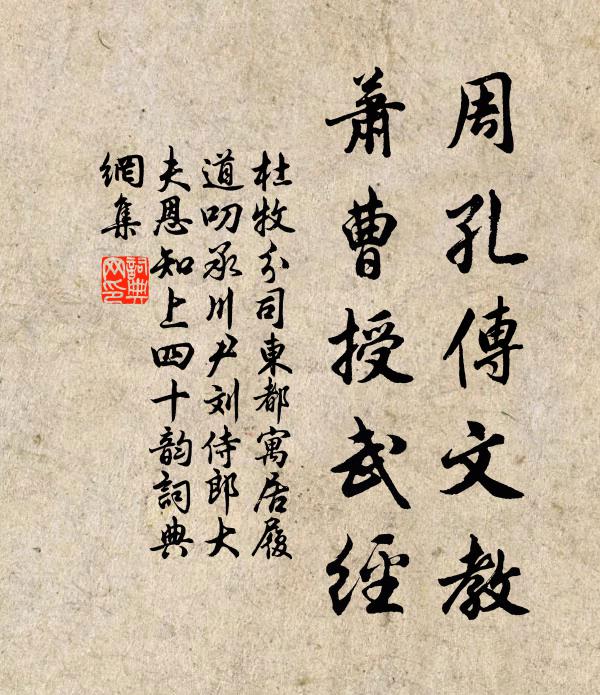 周孔傳文教
蕭曹授武經
杜牧分司東都寓居履
道叨承川尹刘侍郎大
夫恩知上四十韵詞典
網集
詞典網印